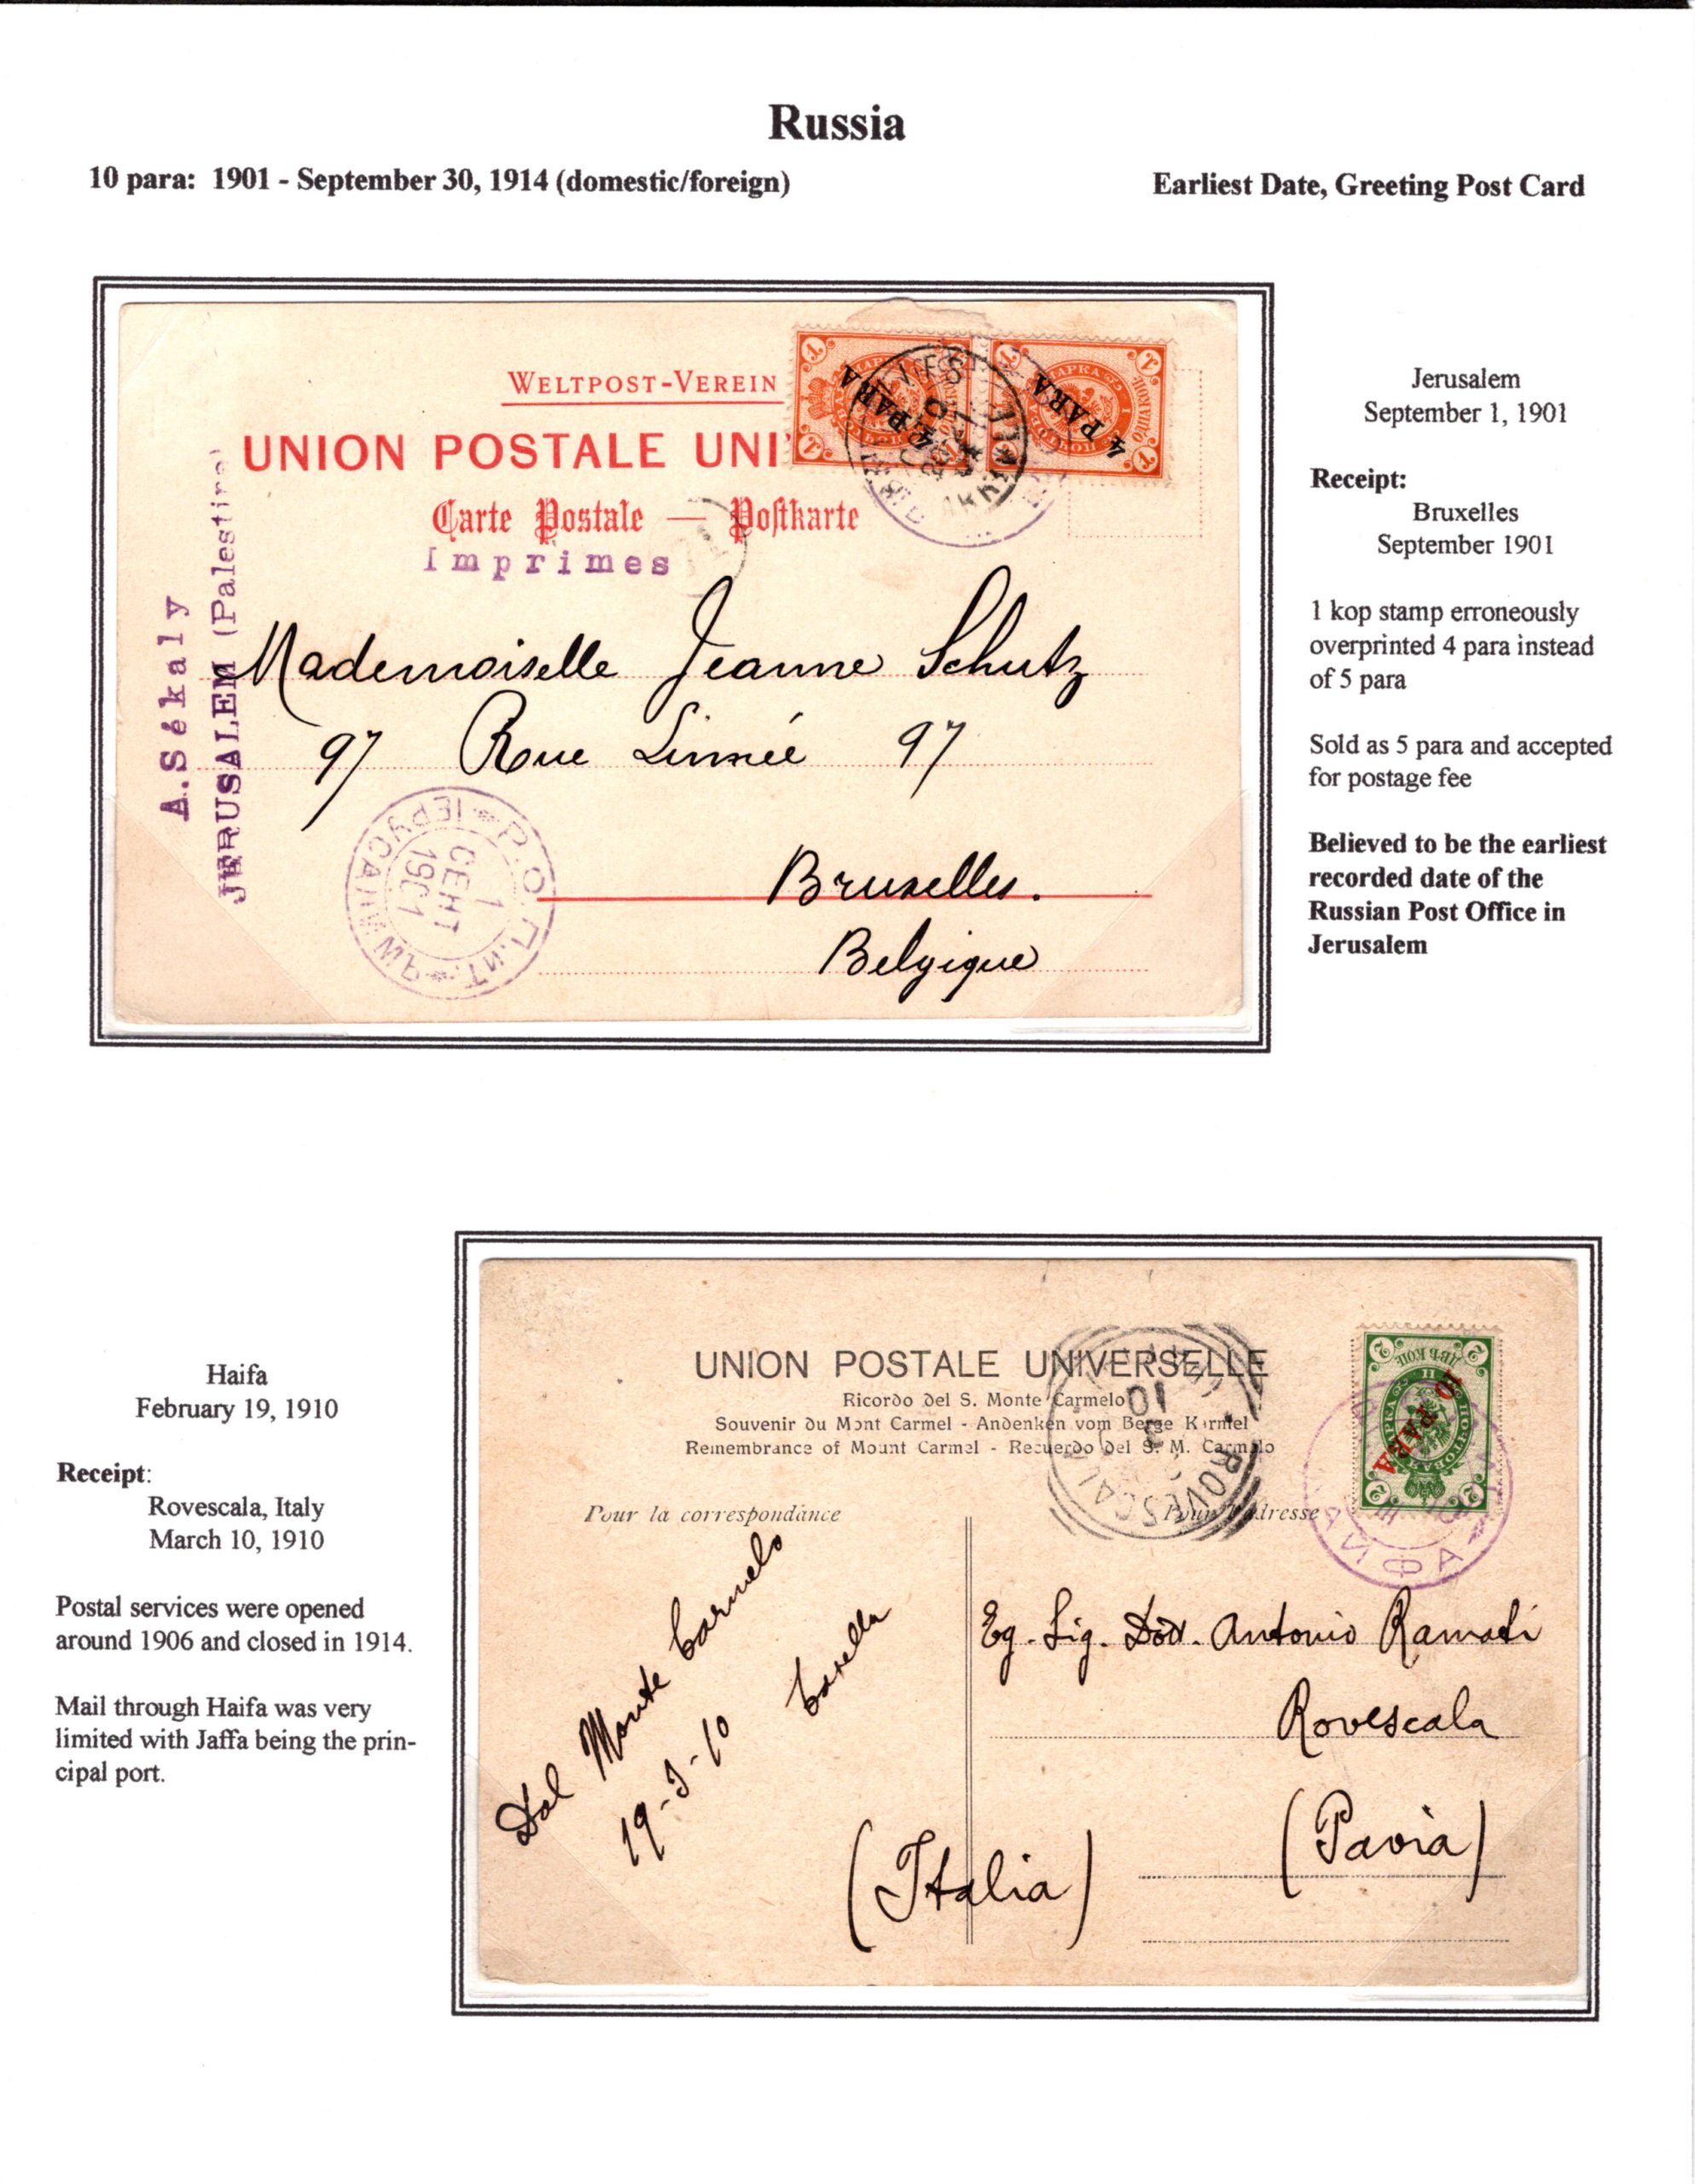 Russia
10 para: 1901 - September 30, 1914 (domestic/foreign)
Earliest Date, Greeting Post Card
WELTPOST-VEREIN
UNION POSTALE UNI
Carte Postale — Postkarte
Imprimes
A.Sékaly
JERUSALEM (Palestine)
4 PARA
4 PARA
Mademoiselle Jeanne Schutz
97 Rue Linnée 97
Bruxelles.
Belgique
Р.О.П.иТ. ІЕРУСАЛИМЪ
1
СЕНТ
1901
Jerusalem
September 1, 1901
Receipt:
Bruxelles
September 1901
1 kop stamp erroneously
overprinted 4 para instead
of 5 para
Sold as 5 para and accepted
for postage fee
Believed to be the earliest
recorded date of the
Russian Post Office in
Jerusalem
Haifa
February 19, 1910
Receipt:
Rovescala, Italy
March 10, 1910
Postal services were opened
around 1906 and closed in 1914.
Mail through Haifa was very
limited with Jaffa being the prin-
cipal port.
UNION POSTALE UNIVERSELLE
Ricordo del S. Monte Carmelo
Souvenir du Mont Carmel - Andenken vom Berge Karmel
Remembrance of Mount Carmel - Recuerdo del S. M. Carmelo
Pour la correspondance
Pour l'adresse
ROVESCALA
10
10 PARA
ХАЙФА
Dal Monte Carmelo
19-3-10
Eg. Sig. Dott. Antonio Ramati
Rovescala
(Pavia)
(Italia)